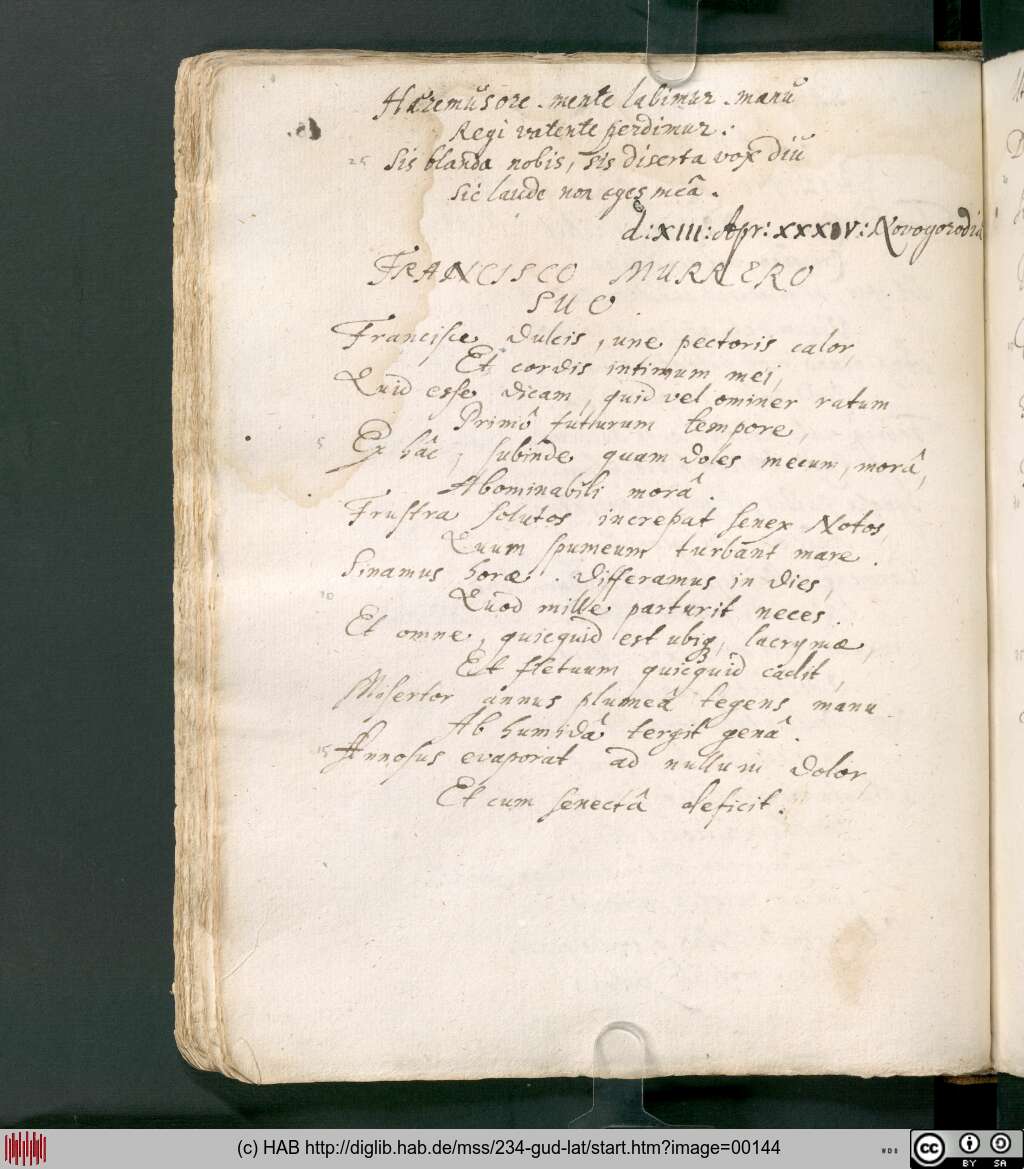 Hæremus ore. mente labimur. manu
Regi vatente perdimur.
25 Sis blanda nobis, sis diserta vox diu
Sic laude non eges meâ.
d: XIII: Apr: XXXIV: Novogorodiæ
FRANCISCO MURRERO
SUO.
Francisce dulcis, une pectoris calor,
Et cordis intimum mei,
Quid esse dicam, quid vel ominer ratum
Primô futurum tempore,
5 Ex hâc, subinde quam doles mecum, morâ,
Abominabili morâ.
Frustra solutos increpat senex Notos,
Quum spumeum turbant mare.
Sinamus horæ. differamus in dies,
10 Quod mille parturit neces.
Et omne, quicquid est ubiq3, lacrymæ,
Et fletuum quicquid cadit,
Misertor annus plumeâ tegens manu
Ab humidâ tergit genâ.
15 Annosus evaporat ad nullum dolor,
Et cum senectâ deficit.
(c) HAB http://diglib.hab.de/mss/234-gud-lat/start.htm?image=00144
cc BY SA